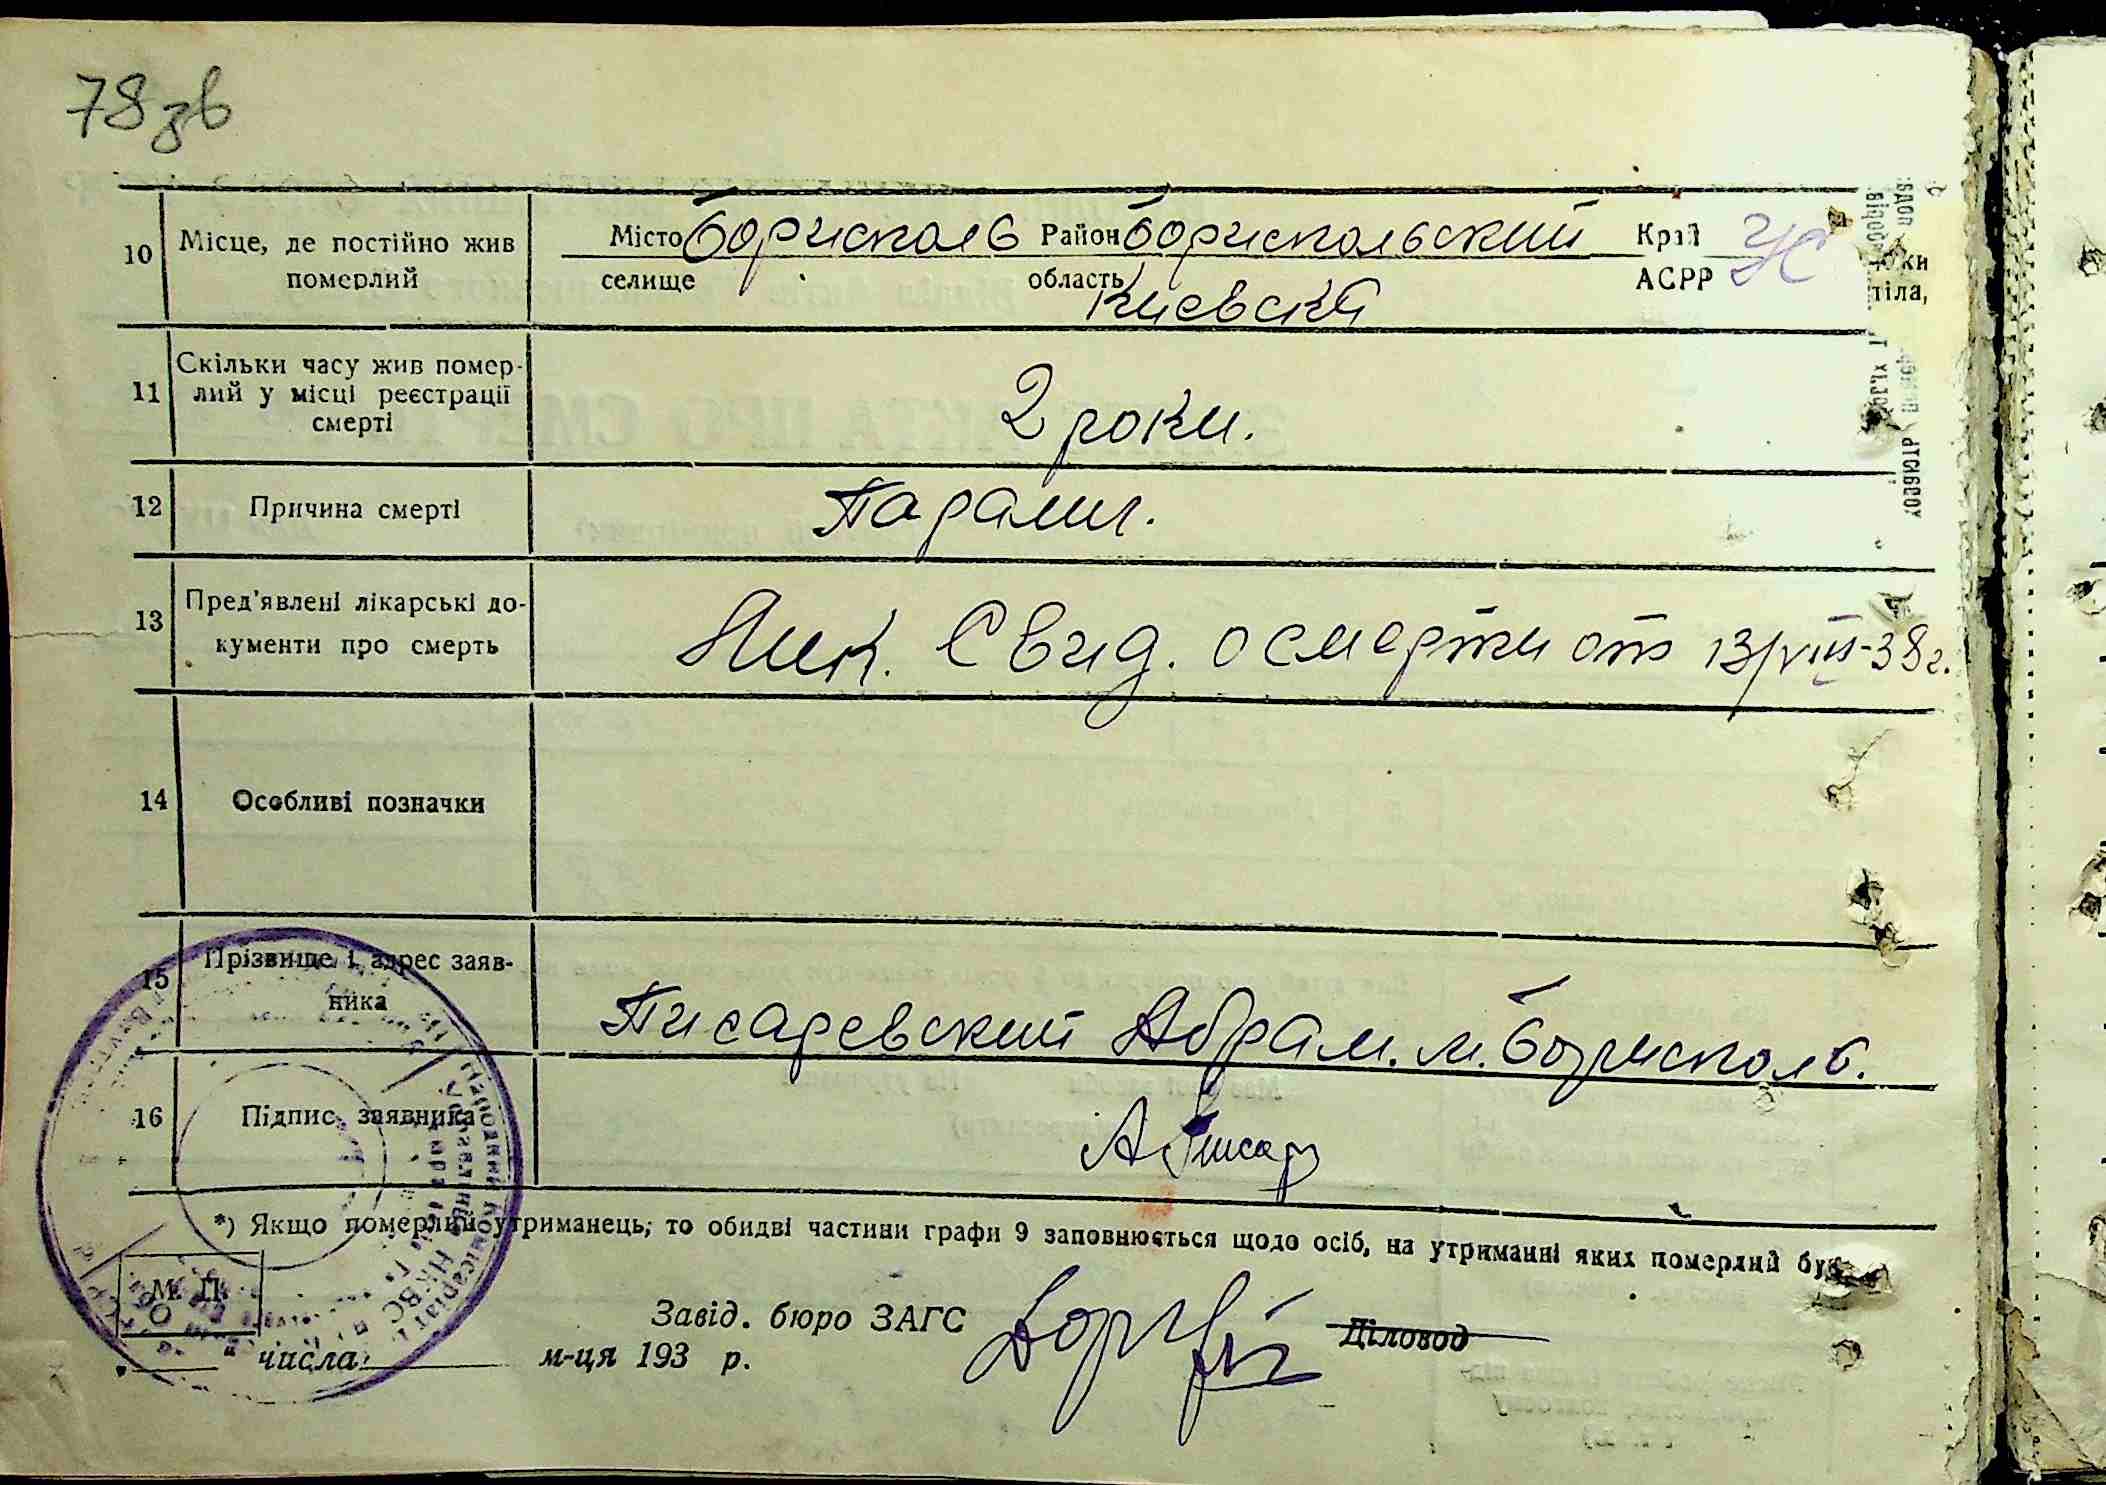 78 зв
10 Місце, де постійно жив Місто Борисполь Район Бориспольский Край УС
померлий селище область Киевска АСРР
11 Скільки часу жив помер-
лий у місці реєстрації 2 роки.
смерті
12 Причина смерті Паралич.
13 Пред'явлені лікарські до-
кументи про смерть Лик. Свид. о смерти от 13/VIII-38 г.
14 Особливі позначки
15 Прізвище і адрес заяв-
ника Писаревский Абрам. м. Борисполь.
16 Підпис заявника АПисар
*) Якщо померлий утриманець, то обидві частини графи 9 заповнюється щодо осіб, на утриманні яких померлий був
М. П.
Завід. бюро ЗАГС Діловод
" числа м-ця 193 р.